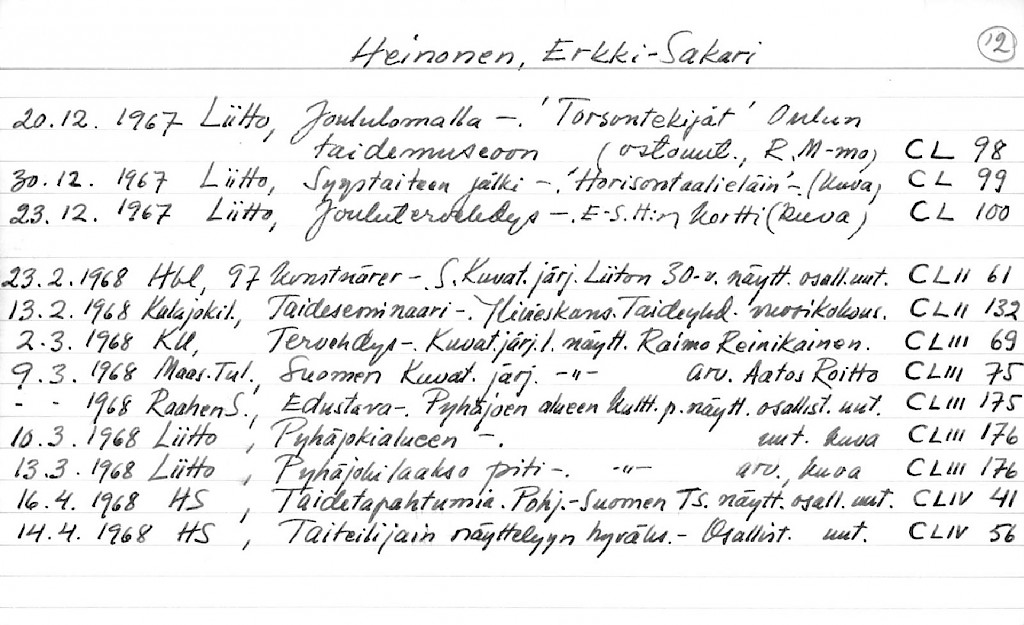 Heinonen, Erkki-Sakari 12
20.12. 1967 Liitto, Joululomalla -. 'Torsontekijät' Oulun
taidemuseoon (ostouut., R.M-mo) CL 98
30.12. 1967 Liitto, Syystaiteen jälki -. 'Horisontaalieläin' -. (kuva) CL 99
23.12. 1967 Liitto, Joulutervehdys -. E-S.H:n kortti (kuva) CL 100
23.2.1968 Hbl, 97 konstnärer -. S.Kuvat.järj. Liiton 30-v. näytt. osall.uut. CLII 61
13.2.1968 Kalajokil., Taideseminaari -. Ylivieskans. Taideyhd. vuosikokous. CLII 132
2.3.1968 KU, Tervehdys -. Kuvat.järj.l. näytt. Raimo Reinikainen. CLIII 69
9.3.1968 Maas.Tul., Suomen Kuvat. järj. -"- arv. Aatos Roitto CLIII 75
- - 1968 RaahenS., Edustava -. Pyhäjoen alueen kultt.p.näytt. osallist. uut. CLIII 175
10.3.1968 Liitto, Pyhäjokialueen -. uut. kuva CLIII 176
13.3.1968 Liitto, Pyhäjokilaakso piti -. -"- arv., kuva CLIII 176
16.4.1968 HS, Taidetapahtumia. Pohj.-Suomen TS. näytt. osall. uut. CLIV 41
14.4.1968 HS, Taiteilijain näyttelyyn hyväks. - Osallist. uut. CLIV 56